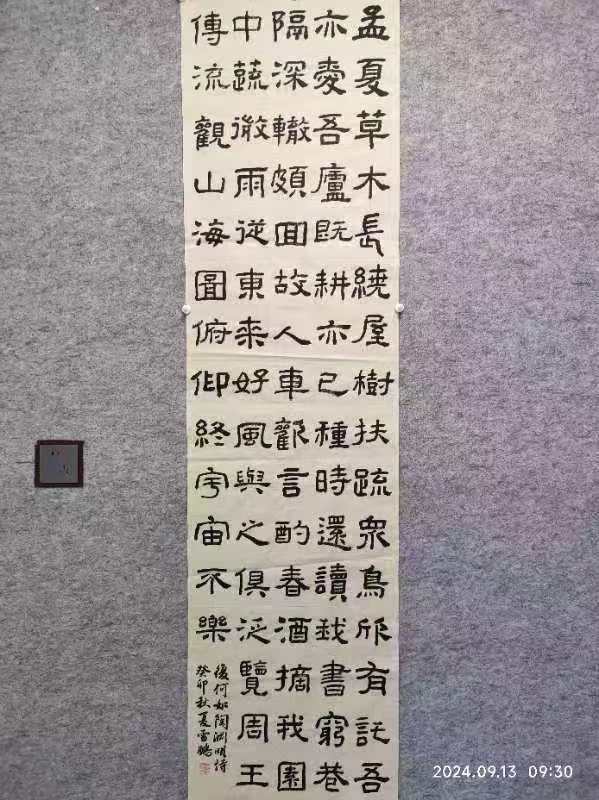 孟夏草木長繞屋樹扶疏衆鳥欣有託吾
亦愛吾廬既耕亦已種時還讀我書窮巷
隔深轍頗回故人車歡言酌春酒摘我園
中蔬微雨從東来好風與之俱泛覽周王
傳流觀山海圖俯仰終宇宙不樂
復何如陶渊明詩
癸卯秋夏雪
2024.09.13 09:30